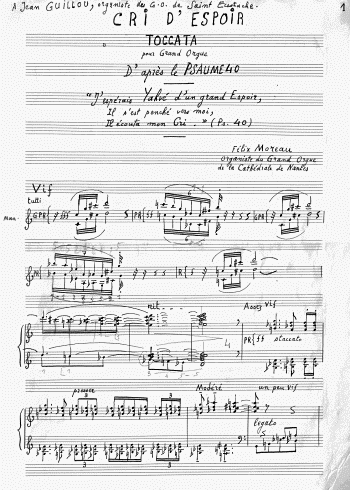 A Jean GUILLOU, organiste des G.O. de Saint Eustache.
1
CRI D'ESPOIR
TOCCATA
pour Grand Orgue
D'après le PSAUME 40
"J'espérais Yahvé d'un grand Espoir,
Il s'est penché vers moi,
Il écouta mon Cri..." (Ps. 40)
Félix Moreau
organiste du Grand Orgue
de la Cathédrale de Nantes
Vif
tutti
Man.
GPR
PR
GPR
R
rit.
Assez Vif
PR
staccato
4
presser
Modéré
un peu vif
legato
3
3